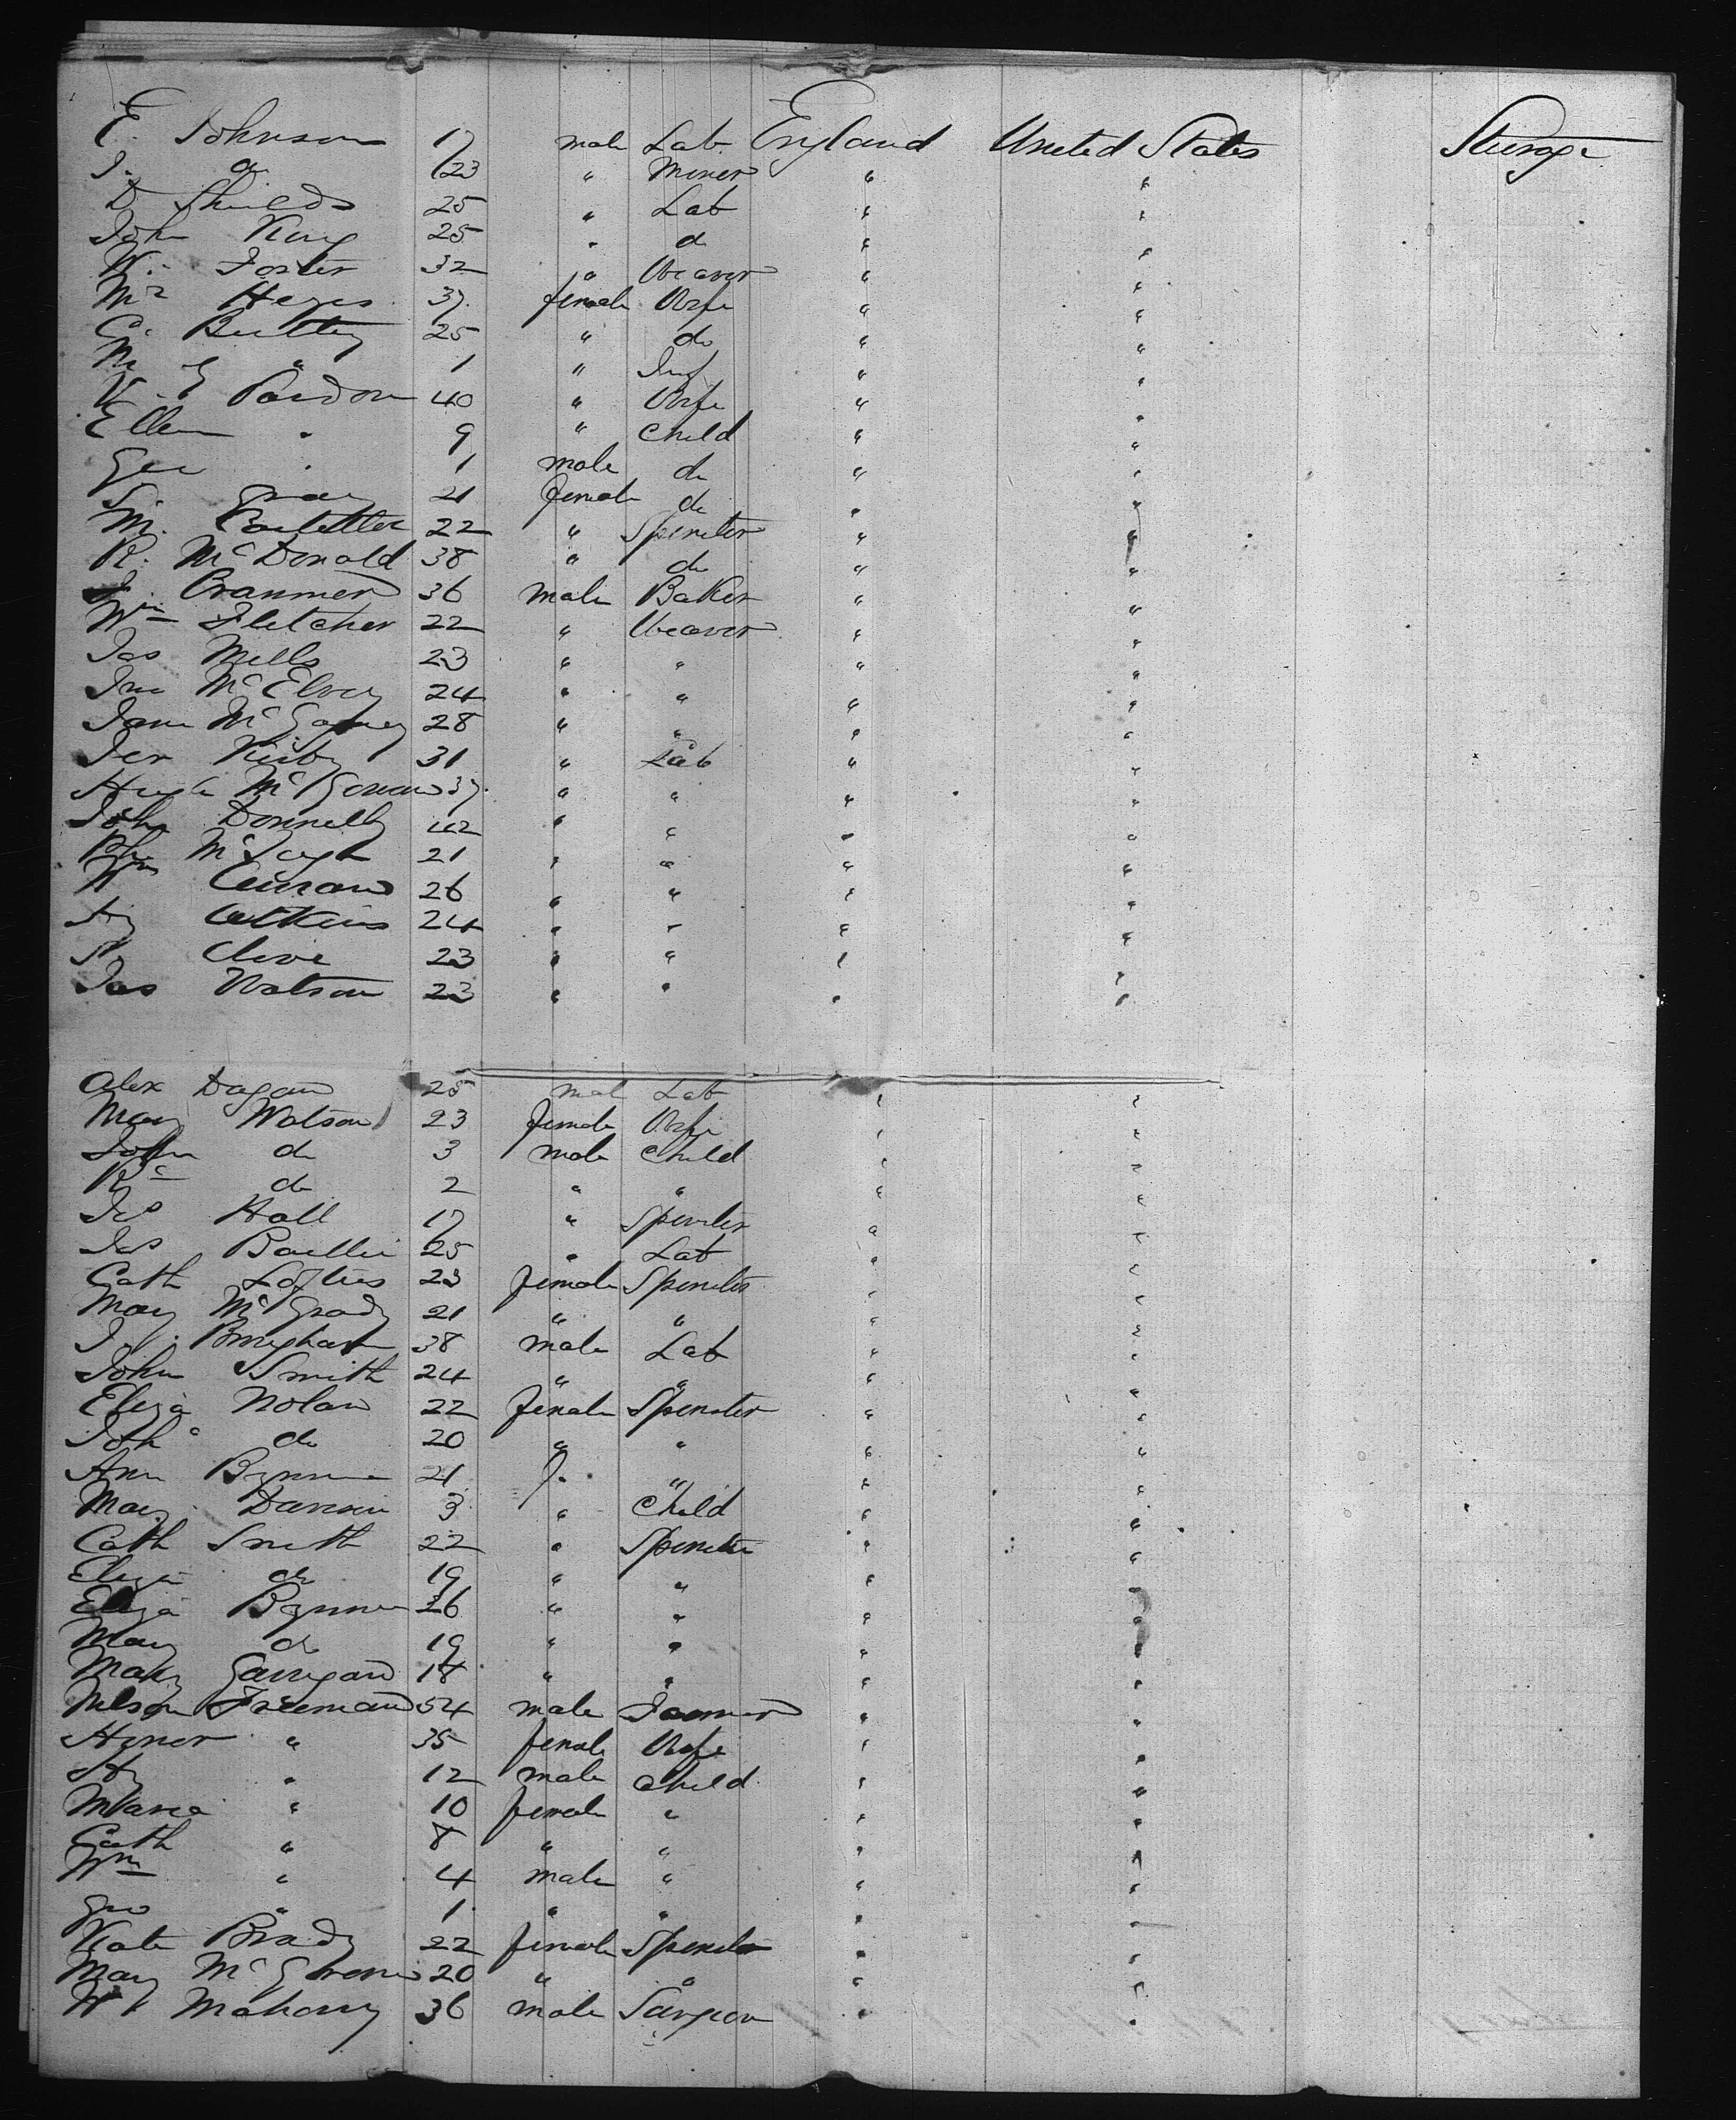 E. Johnson 17 male Lab England United States Steerage
J. do 23 " Miner " "
D Shields 25 " Lab " "
John King 25 " do " "
Wm Foster 32 " Weaver " "
Mrs Heyes 37 female Wife " "
C. Buttery 25 " do " "
M E " 1 " Inf " "
V. E Pardon 40 " Wife " "
Ellen " 9 " Child " "
Geo " 1 male do " "
S. Gray 21 female do " "
M. 22 " Spinster " "
R. McDonald 38 " do " "
J. Cranmer 36 male Baker " "
Wm Fletcher 22 " Weaver " "
Jas Mills 23 " " " "
Jno McElvey 24 " " " "
Jam 28 " " " "
Jer Kirby 31 " Lab " "
Hugh McGowan 37 " " " "
John Donnelly 42 " " " "
21 " " " "
Wm Curran 26 " " " "
Hy Atkins 24 " " " "
S. Clive 23 " " " "
Jas Watson 23 " " " "
Alex Dagan 25 mal Lab " "
Mary Watson 23 female Wife " "
John do 3 male Child " "
Rd do 2 " " " "
Jas Hall 17 " Spinster " "
Jas Baillie 25 " Lab " "
Cath Loftus 23 female Spinster " "
Mary McGrady 21 " " " "
J. Bingham 38 male Lab " "
John Smith 24 " " " "
Eliza Nolan 22 female Spinster " "
Joha do 20 " " " "
Ann Bynne 21 f. " " "
Mary 3 " Child " "
Cath Smith 22 " Spinster " "
Eliza do 19 " " " "
Eliza Bynne 26 " " " "
Mary do 19 " " " "
Mary Garrigan 18 " " " "
Nelson Freeman 54 male Farmer " "
Honor " 35 female Wife " "
Hy " 12 male Child " "
Maria " 10 female " " "
Cath " 8 " " " "
Wm " 4 male " " "
Geo " 1 " " " "
Kate Brady 22 female Spinster " "
Mary 20 " " " "
W Mahony 36 male Surgeon " "